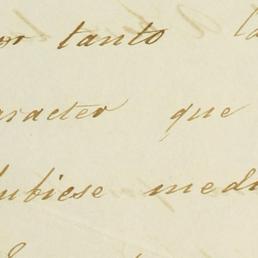 or tanto la
aracter que
hubiese medi